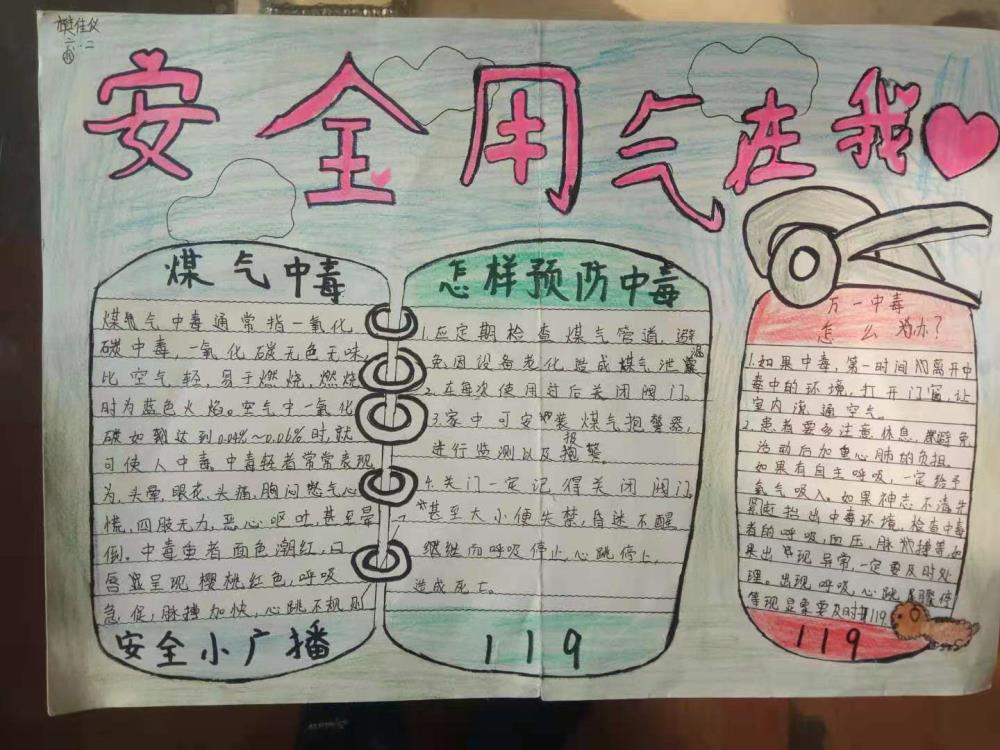 樊佳仪
六.二
安全用气在我
煤气中毒
煤气气中毒通常指一氧化
碳中毒,一氧化碳无色无味,
比空气轻,易于燃烧,燃烧
时为蓝色火焰。空气中一氧化
碳如到达到0.04%～0.06%时,就
可使人中毒。中毒轻者常常表现
为,头晕,眼花,头痛,胸闷憋气心
慌,四肢无力,恶心呕吐,甚至晕
倒。中毒重者面色潮红,口
唇呈现樱桃红色,呼吸
急促,脉搏加快,心跳不规则
安全小广播
怎样预防中毒
1.应定期检查煤气管道,避
免因设备老化造成煤气泄漏
2.在每次使用过后关闭阀门。
3.家中可安装煤气报警器,
进行监测以及报警。
4.关门一定记得关闭阀门。
*甚至大小便失禁,昏迷不醒
继续而呼吸停止,心跳停止,
造成死亡。
119
万一中毒
怎么办?
1.如果中毒,第一时间离开中
毒中的环境,打开门窗,让
室内流通空气。
2.患者要多注意休息,避免
活动后加重心肺的负担
如果有自主呼吸,一定给予
氧气吸入。如果神志不清先
紧急抬出中毒环境,检查中毒
者的呼吸,血压,脉搏等,如
果出现异常,一定要及时处
理。出现,呼吸,心跳骤停
等现象要及时打119
119